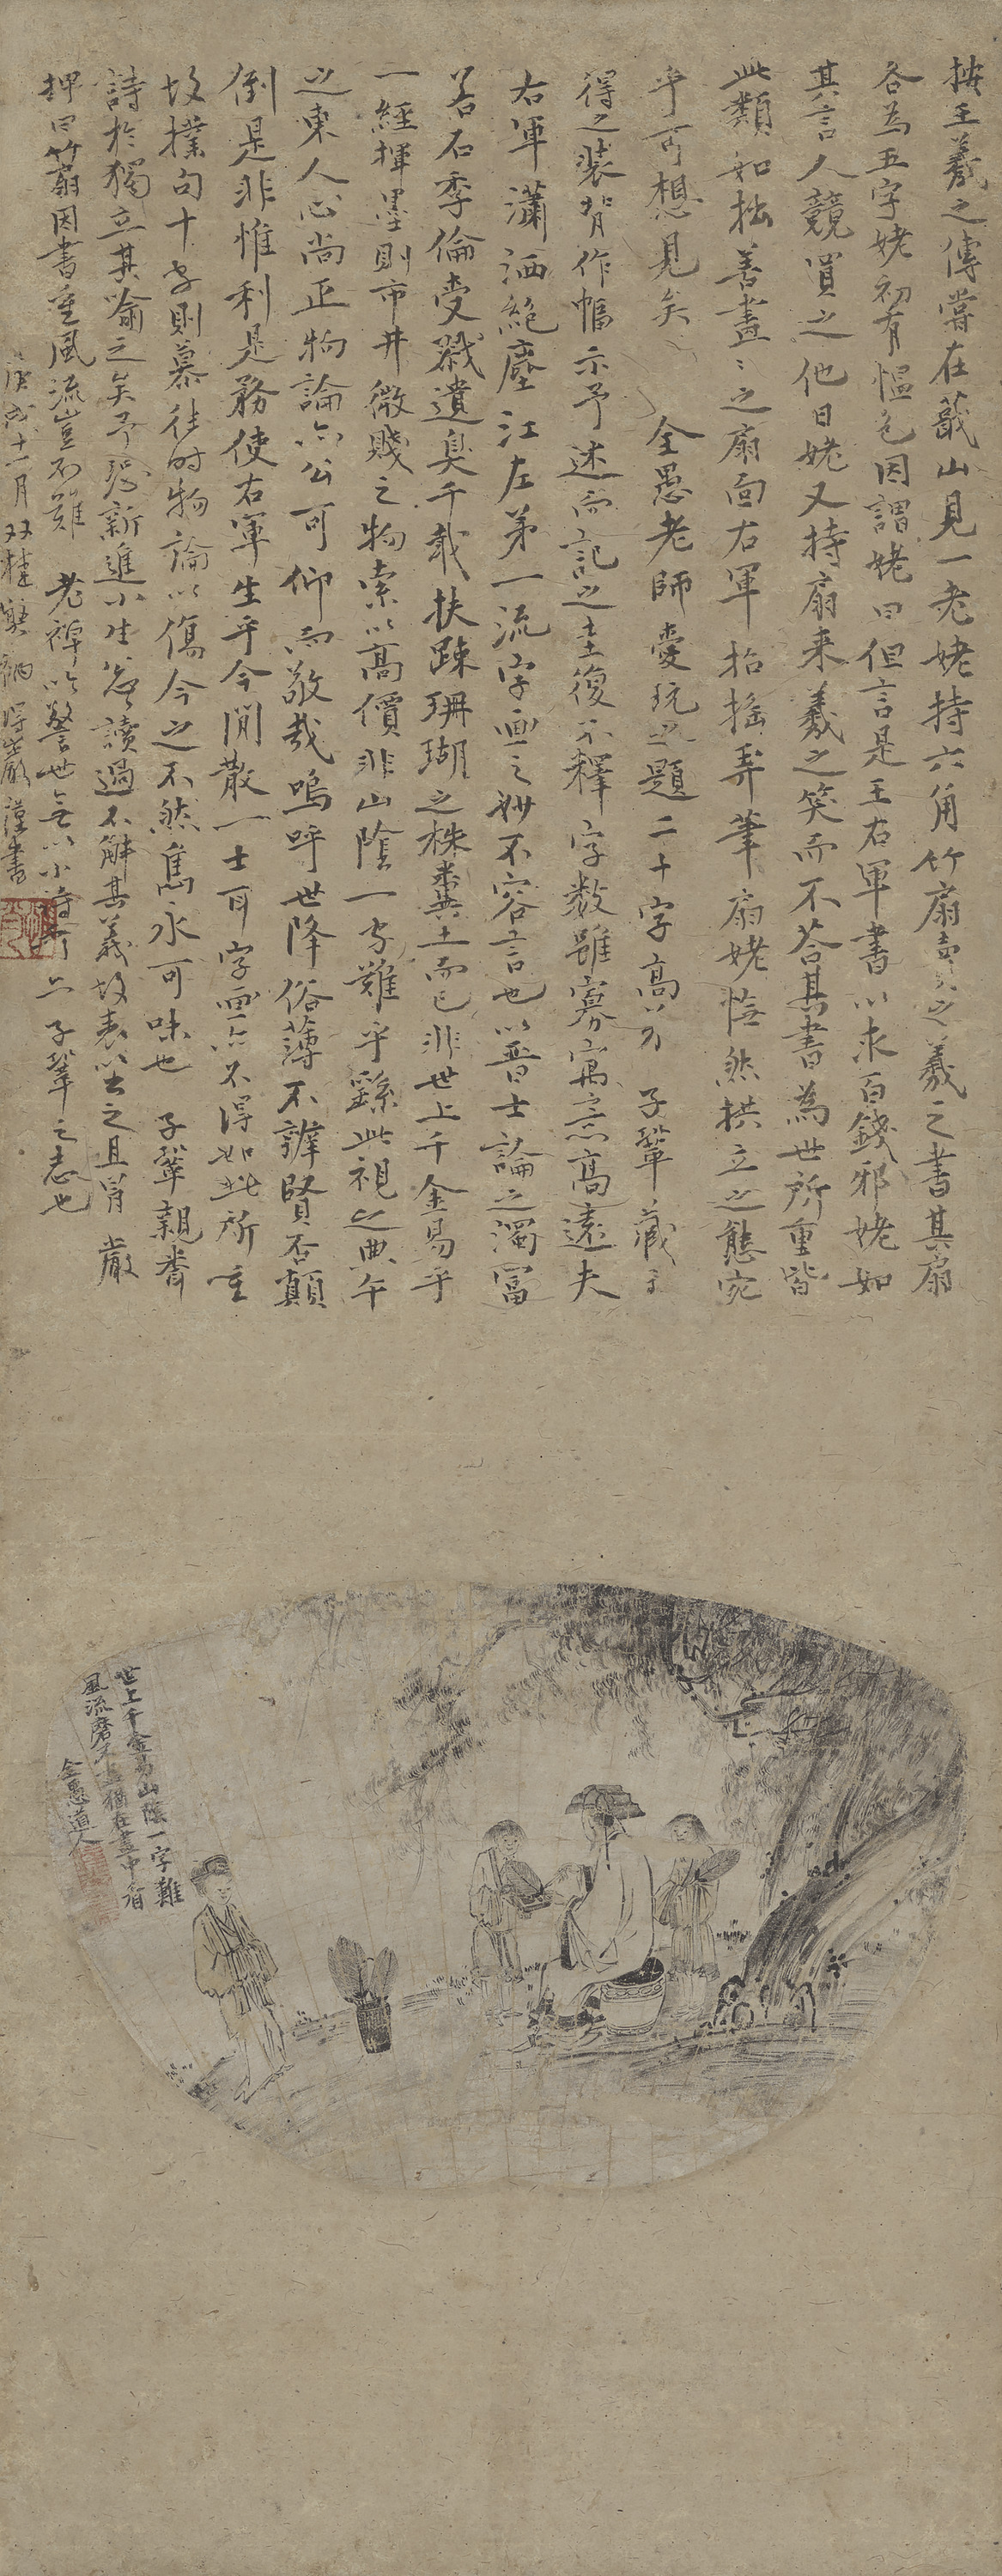 按王羲之傳嘗在蕺山見一老姥持六角竹扇賣之羲之書其扇
各為五字姥初有慍色因謂姥曰但言是王右軍書以求百錢邪姥如
其言人競買之他日姥又持扇来羲之笑而不荅其書為世所重皆
此類如拙善畫〻之扇面右軍拈搖弄筆扇姥恠然拱立之態宛
乎可想見矣 全愚老師愛玩之題二十字高以 子鞏蔵
得之裝背作幅示予述而記之圭復不釋字数雖寡寓意高遠夫
右軍瀟洒絶塵江左第一流字画之妙不容言也以晋士論之濁冨
若石季倫受戮遺臭千載扶踈珊瑚之株糞土而已非世上千金易乎
一經揮墨則市井微賤之物索以高價非山陰一字難乎繇此視之典午
之東人心尚正物論亦公可仰而敬哉嗚呼世降俗薄不辨賢否顛
倒是非惟利是務使右軍生乎今閒散一士耳字画亦不得如此所重
故撲句十字則慕往时物論以傷今之不然雋永可味也 子鞏親炙
詩於獨立其喻之矣予恐新進小生容讀過不解其義故表出之且胃嚴
押曰竹扇因書重風流豈不難 老禅以警世無小 上 子鞏之志也
庚戌十一月双桂 得巖謹書
世上千金易山陰一字難
風流磨不盡猶在畫中看
全愚道人